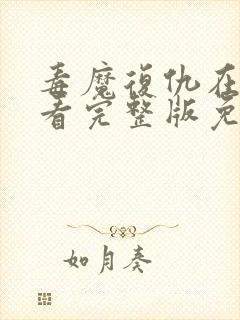 毒魔復仇在
看完整版免
如月奏